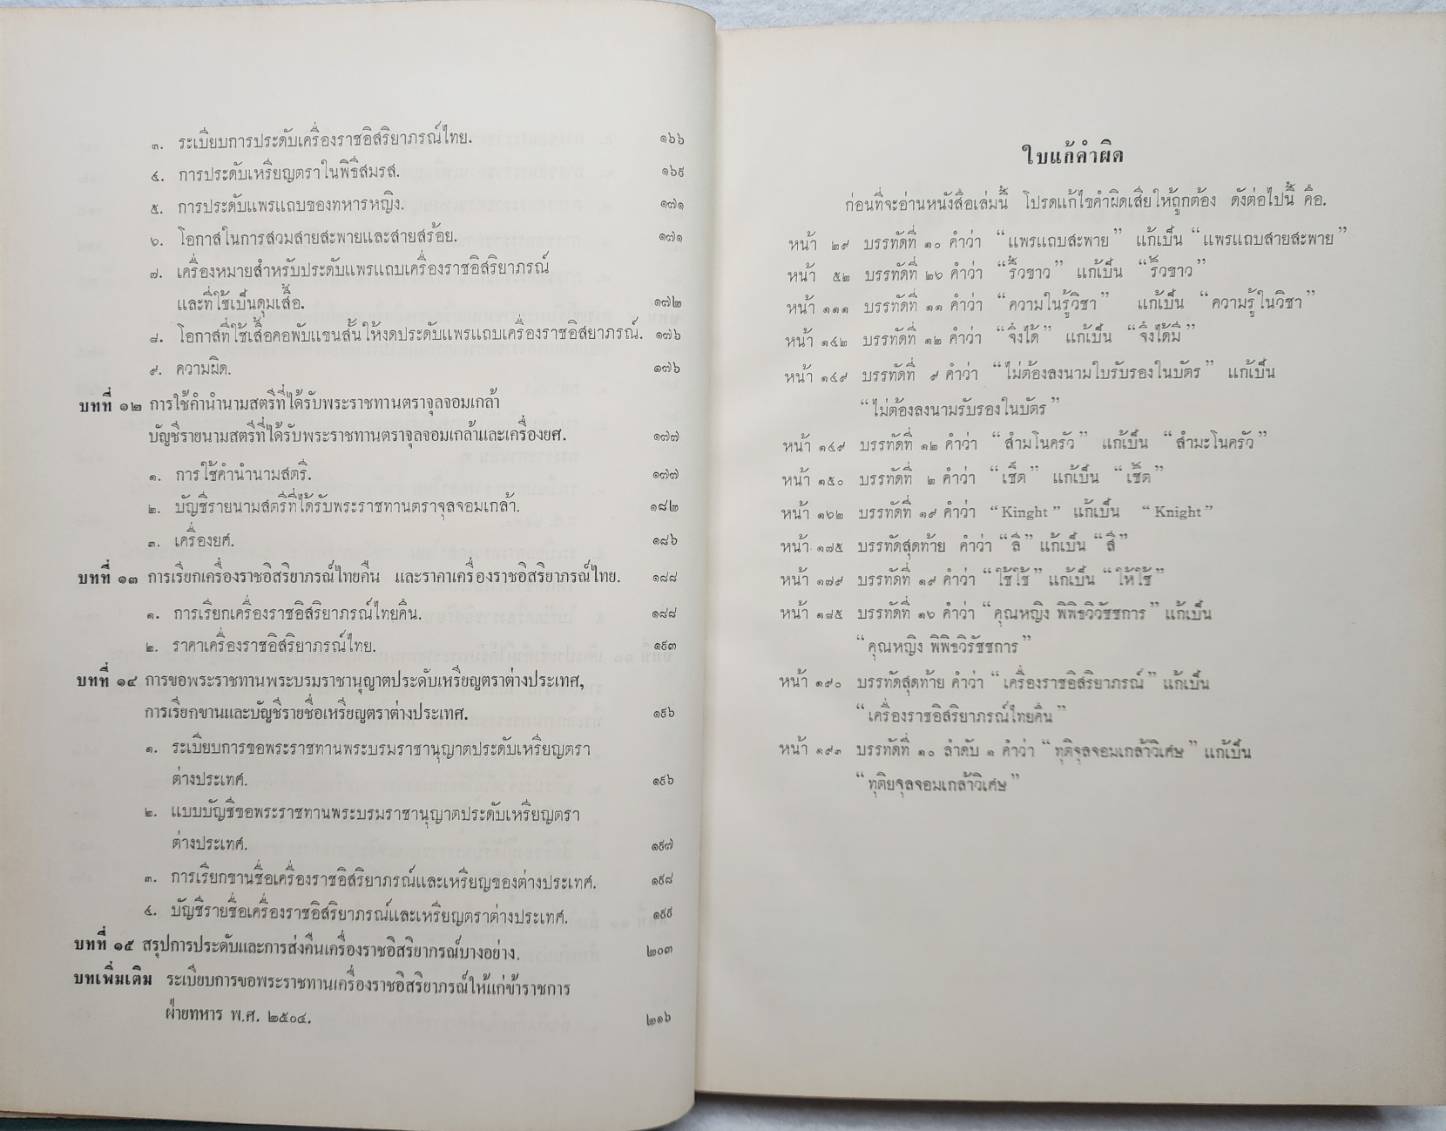 ๓. ระเบียบการประดับเครื่องราชอิสริยาภรณ์ไทย. ๑๖๖
๔. การประดับเหรียญตราในพิธีสมรส. ๑๖๙
๕. การประดับแพรแถบของทหารหญิง. ๑๗๑
๖. โอกาสในการสวมสายสะพายและสายสร้อย. ๑๗๑
๗. เครื่องหมายสำหรับประดับแพรแถบเครื่องราชอิสริยาภรณ์
และที่ใช้เป็นดุมเสื้อ. ๑๗๒
๘. โอกาสที่ใช้เสื้อคอพับแขนสั้นให้งดประดับแพรแถบเครื่องราชอิสยาภรณ์. ๑๗๖
๙. ความผิด. ๑๗๖
บทที่ ๑๒ การใช้คำนำนามสตรีที่ได้รับพระราชทานตราจุลจอมเกล้า
บัญชีรายนามสตรีที่ได้รับพระราชทานตราจุลจอมเกล้าและเครื่องยศ. ๑๗๗
๑. การใช้คำนำนามสตรี. ๑๗๗
๒. บัญชีรายนามสตรีที่ได้รับพระราชทานตราจุลจอมเกล้า. ๑๘๒
๓. เครื่องยศ. ๑๘๖
บทที่ ๑๓ การเรียกเครื่องราชอิสริยาภรณ์ไทยคืน และราคาเครื่องราชอิสริยาภรณ์ไทย. ๑๘๘
๑. การเรียกเครื่องราชอิสริยาภรณ์ไทยคืน. ๑๘๘
๒. ราคาเครื่องราชอิสริยาภรณ์ไทย. ๑๙๓
บทที่ ๑๔ การขอพระราชทานพระบรมราชานุญาตประดับเหรียญตราต่างประเทศ,
การเรียกขานและบัญชีรายชื่อเหรียญตราต่างประเทศ. ๑๙๖
๑. ระเบียบการขอพระราชทานพระบรมราชานุญาตประดับเหรียญตรา
ต่างประเทศ. ๑๙๖
๒. แบบบัญชีขอพระราชทานพระบรมราชานุญาตประดับเหรียญตรา
ต่างประเทศ. ๑๙๗
๓. การเรียกขานชื่อเครื่องราชอิสริยาภรณ์และเหรียญของต่างประเทศ. ๑๙๘
๔. บัญชีรายชื่อเครื่องราชอิสริยาภรณ์และเหรียญตราต่างประเทศ. ๑๙๙
บทที่ ๑๕ สรุปการประดับและการส่งคืนเครื่องราชอิสริยาภรณ์บางอย่าง. ๒๐๓
บทเพิ่มเติม ระเบียบการขอพระราชทานเครื่องราชอิสริยาภรณ์ให้แก่ข้าราชการ
ฝ่ายทหาร พ.ศ. ๒๕๐๔. ๒๑๖
ใบแก้คำผิด
ก่อนที่จะอ่านหนังสือเล่มนี้ โปรดแก้ไขคำผิดเสียให้ถูกต้อง ดังต่อไปนี้ คือ.
หน้า ๒๙ บรรทัดที่ ๑๐ คำว่า “แพรแถบสะพาย” แก้เป็น “แพรแถบสายสะพาย”
หน้า ๕๒ บรรทัดที่ ๒๖ คำว่า “รั้วขาว” แก้เป็น “ริ้วขาว”
หน้า ๑๑๑ บรรทัดที่ ๑๑ คำว่า “ความในรู้วิชา” แก้เป็น “ความรู้ในวิชา”
หน้า ๑๔๒ บรรทัดที่ ๑๒ คำว่า “จึงได้” แก้เป็น “จึงได้มี”
หน้า ๑๔๙ บรรทัดที่ ๙ คำว่า “ไม่ต้องลงนามใบรับรองในบัตร” แก้เป็น
“ไม่ต้องลงนามรับรองในบัตร”
หน้า ๑๔๙ บรรทัดที่ ๑๒ คำว่า “สำมโนครัว” แก้เป็น “สำมะโนครัว”
หน้า ๑๕๐ บรรทัดที่ ๒ คำว่า “เช็ต” แก้เป็น “เซ๊ต”
หน้า ๑๖๒ บรรทัดที่ ๑๙ คำว่า “Kinght” แก้เป็น “Knight”
หน้า ๑๗๕ บรรทัดสุดท้าย คำว่า “ลี” แก้เป็น “สี”
หน้า ๑๗๙ บรรทัดที่ ๑๙ คำว่า “ใช้ใช้” แก้เป็น “ให้ใช้”
หน้า ๑๘๕ บรรทัดที่ ๑๖ คำว่า “คุณหญิง พิพิธวิวัชชการ” แก้เป็น
“คุณหญิง พิพิธวิรัชชการ”
หน้า ๑๙๐ บรรทัดสุดท้าย คำว่า “เครื่องราชอิสริยาภรณ์” แก้เป็น
“เครื่องราชอิสริยาภรณ์ไทยคืน”
หน้า ๑๙๓ บรรทัดที่ ๑๐ ลำดับ ๑ คำว่า “ทุติจุลจอมเกล้าวิเศษ” แก้เป็น
“ทุติยจุลจอมเกล้าวิเศษ”